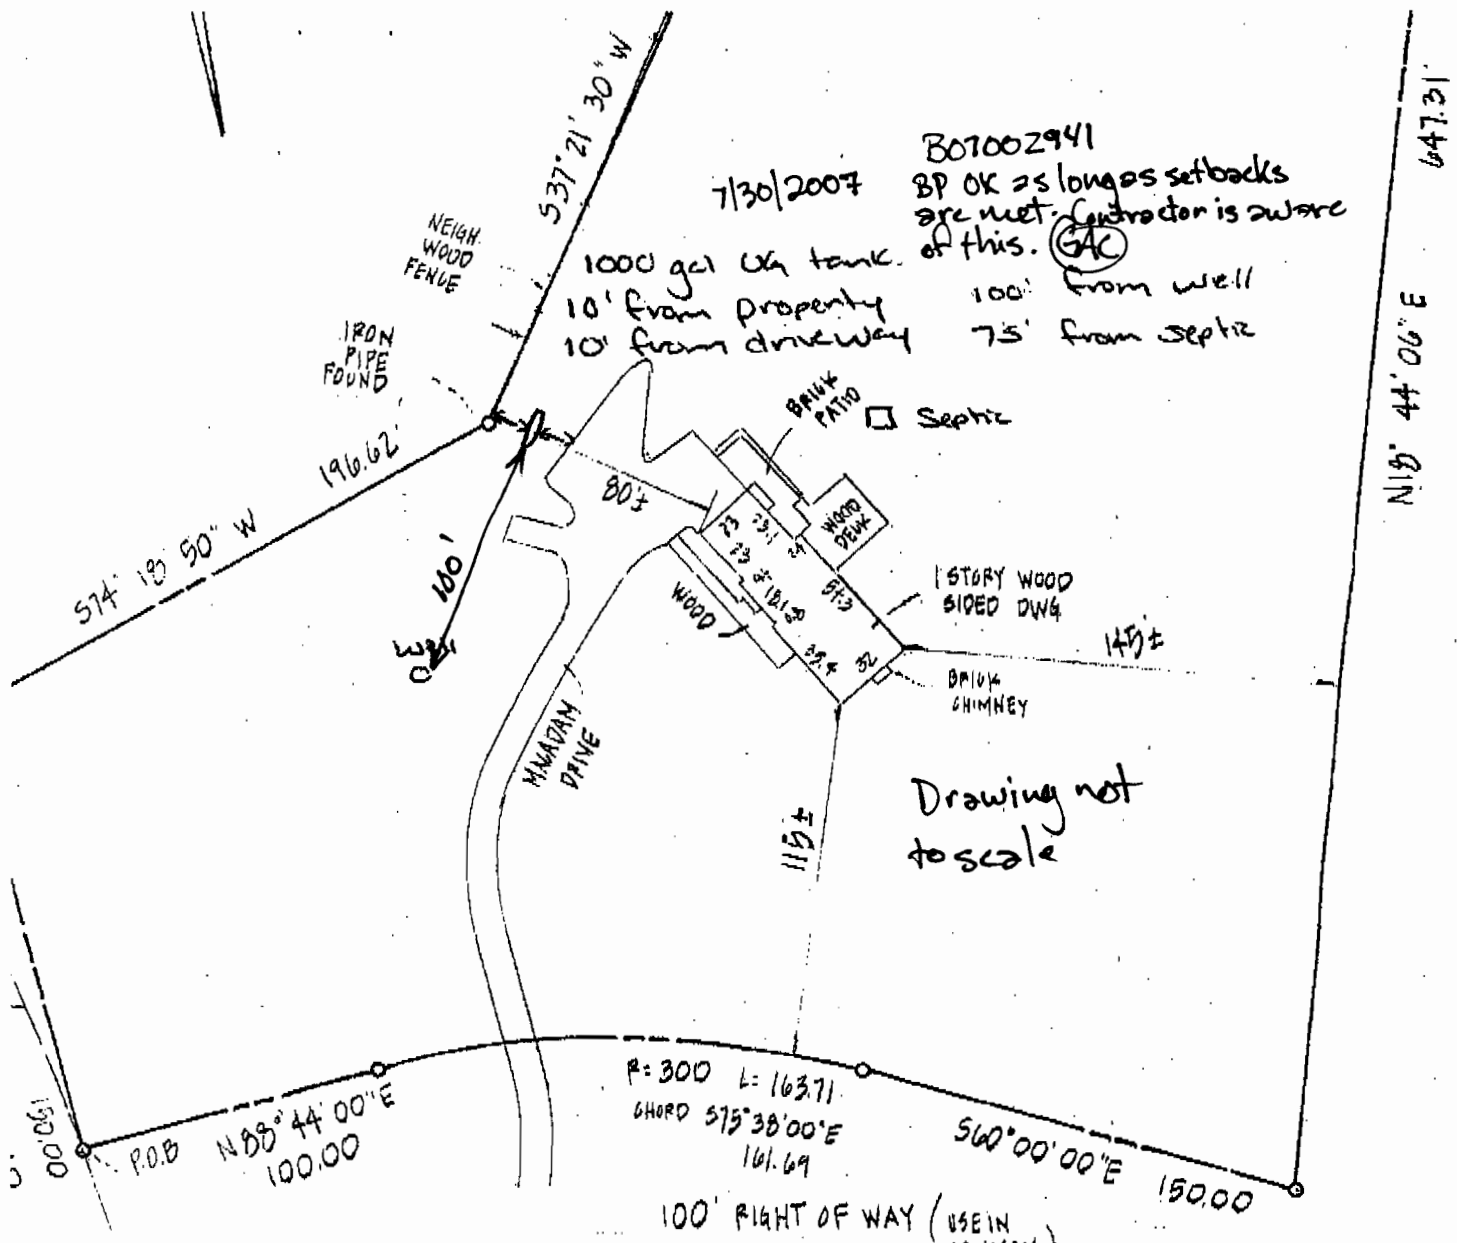 S37° 21' 30" W
647.31'
B07002941
7/30/2007
BP OK as long as setbacks
are met. Contractor is aware
of this. GAC
1000 gal UG tank.
10' from property
10' from driveway
100' from well
75' from septic
NEIGH.
WOOD
FENCE
IRON
PIPE
FOUND
N18° 44' 06" E
BRICK
PATIO
Septic
196.62'
S74° 18' 50" W
80'±
100'
Well
WOOD
DECK
23
23.1
24
57.3
32
WOOD
1 STORY WOOD
SIDED DWG
145'±
BRICK
CHIMNEY
MACADAM
DRIVE
115'±
Drawing not
to scale
R=300 L=163.71
CHORD S75°38'00"E
161.69
150.00
P.O.B
N88°44'00"E
100.00
S60°00'00"E
150.00
100' RIGHT OF WAY (USE IN